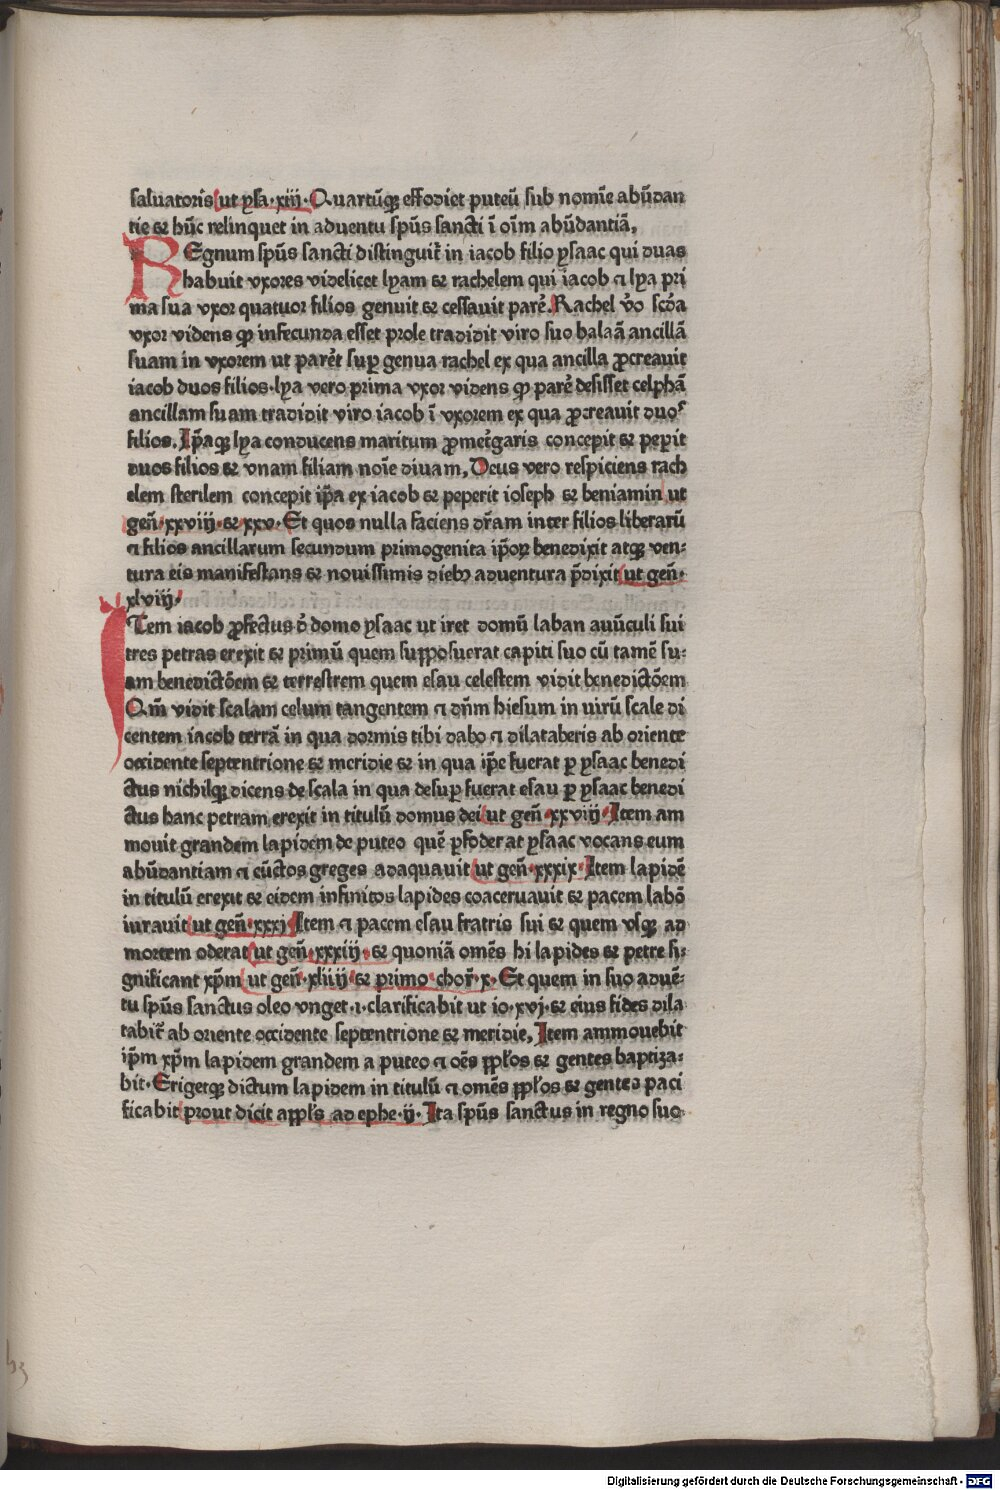 saluatoris ut ysa·xiij·Quartūqꝫ effodiet puteū sub nomīe abūdan
tie ⁊ hūc relinquet in aduentu spūs sancti ī oīm abūdantiā,
REgnum spūs sancti distinguit̄ in iacob filio ysaac qui duas
habuit vxores videlicet lyam ⁊ rachelem qui iacob ⁊ lya pri
ma sua vxor quatuor filios genuit ⁊ cessauit parē.Rachel v̄o scd̄a
vxor videns ꝙ infecunda esset prole tradidit viro suo balaā ancillā
suam in vxorem ut parēt suꝑ genua rachel ex qua ancilla ꝓcreauit
iacob duos filios·lya vero prima vxor videns ꝙ parē desisset celphā
ancillam suam tradidit viro iacob ī vxorem ex qua ꝓcreauit duos
filios.Ip̄aqꝫ lya conducens maritum ꝓ met̄garis concepit ⁊ pepit
duos filios ⁊ vnam filiam noīe diuam,Deus vero respiciens rach
elem sterilem concepit ip̄a ex iacob ⁊ peperit ioseph ⁊ beniamin ut
geñ·xxviij·⁊ xxv·Et quos nulla faciens dr̄am inter filios liberarū
⁊ filios ancillarum secundum primogenita ip̄oꝝ benedixit atqꝫ ven-
tura eis manifestans ⁊ nouissimis diebꝫ aduentura p̄dixit ut geñ·
xlviij·
ITem iacob ꝓfectus d̄ domo ysaac ut iret domū laban auūculi sui
tres petras erexit ⁊ primū quem supposuerat capiti suo cū tamē su-
am benedictōem ⁊ terrestrem quem esau celestem vidit benedictōem
Qm̄ vidit scalam celum tangentem ⁊ dn̄m hiesum in uirū scale di
centem iacob terrā in qua dormis tibi dabo ⁊ dilataberis ab oriente
occidente septentrione ⁊ meridie ⁊ in qua ip̄e fuerat ꝑ ysaac benedi
ctus nichilqꝫ dicens de scala in qua desuꝑ fuerat esau ꝑ ysaac benedi
ctus hanc petram erexit in titulū domus dei ut geñ·xxviij·Item am
mouit grandem lapidem de puteo quē ꝑfoderat ysaac vocans eum
abūdantiam ⁊ cūctos greges adaquauit ut geñ·xxxix·Item lapidē
in titulū erexit ⁊ eidem infinitos lapides coaceruauit ⁊ pacem labō
iurauit ut geñ·xxxj·Item ⁊ pacem esau fratris sui ⁊ quem vsqꝫ ad
mortem oderat ut geñ·xxxiij·⁊ quoniā omēs hi lapides ⁊ petre si-
gnificant xp̄m ut geñ·xliiij ⁊ primo chor̄·x·Et quem in suo aduē-
tu spūs sanctus oleo vnget·i·clarificabit ut io·xvj·⁊ eius fides dila
tabit̄ ab oriente occidente septentrione ⁊ meridie,Item ammouebit
ip̄m xp̄m lapidem grandem a puteo ⁊ oēs ppl̄os ⁊ gentes baptiza-
bit·Erigetqꝫ dictum lapidem in titulū ⁊ omēs ppl̄os ⁊ gentes paci
ficabit prout dicit appl̄s ad ephe·ij·Ita spūs sanctus in regno suo
Digitalisierung gefördert durch die Deutsche Forschungsgemeinschaft - DFG